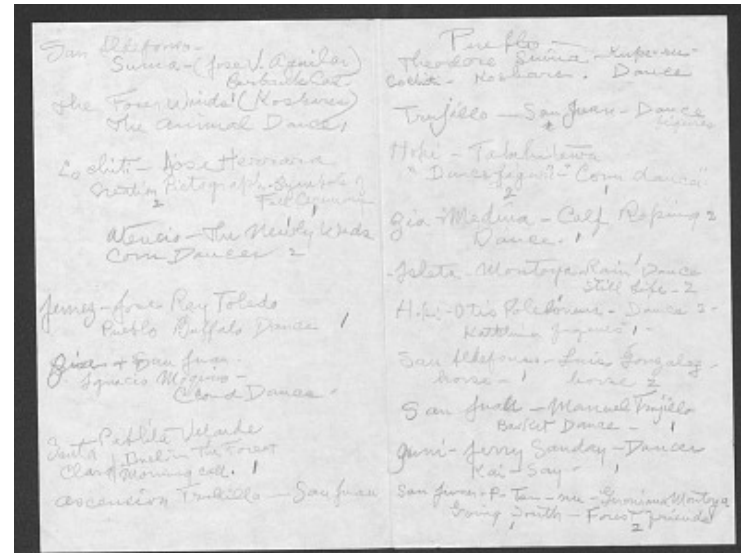 San Ildefonso -
Suina - (Jose V. Aguilar)
The Four Winds! (Koshare)
The Animal Dance,
Cochiti - Jose Herrera
Creation Pictograph - Symbols of
2 Fall Ceremony
Atencio - The Newly Weds
Corn Dancer 2
Jemez - Jose Rey Toledo
Pueblo Buffalo Dance 1
+ San Juan -
Ignacio Moquino -
Cloud Dance -
Pablita Velarde
Santa
Clara in The Forest
Morning call. 1
Ascension Trujillo - San Juan
Pueblo -
Theodore Suina -
Cochiti - Koshare. Dance
Trujillo - San Juan - Dance
figures
Hopi -
"Dance figure" "Corn dance"
2 1
Zia - Medina - Calf Roping 2
Dance. 1
Isleta - Montoya - Rain Dance
Still Life - 2
Hopi - Otis Polelonema - Dance 2 -
Katchina figures 1 -
San Ildefonso - Luis Gonzalez -
horse - 1 horse 2
San Juan - Manuel Trujillo
Basket Dance - 1
Zuni - Jerry - Dancer
Kai - Say - 1
San Juan - P - Tan - nu - Geronima Montoya
Going South - Forest Friends
2